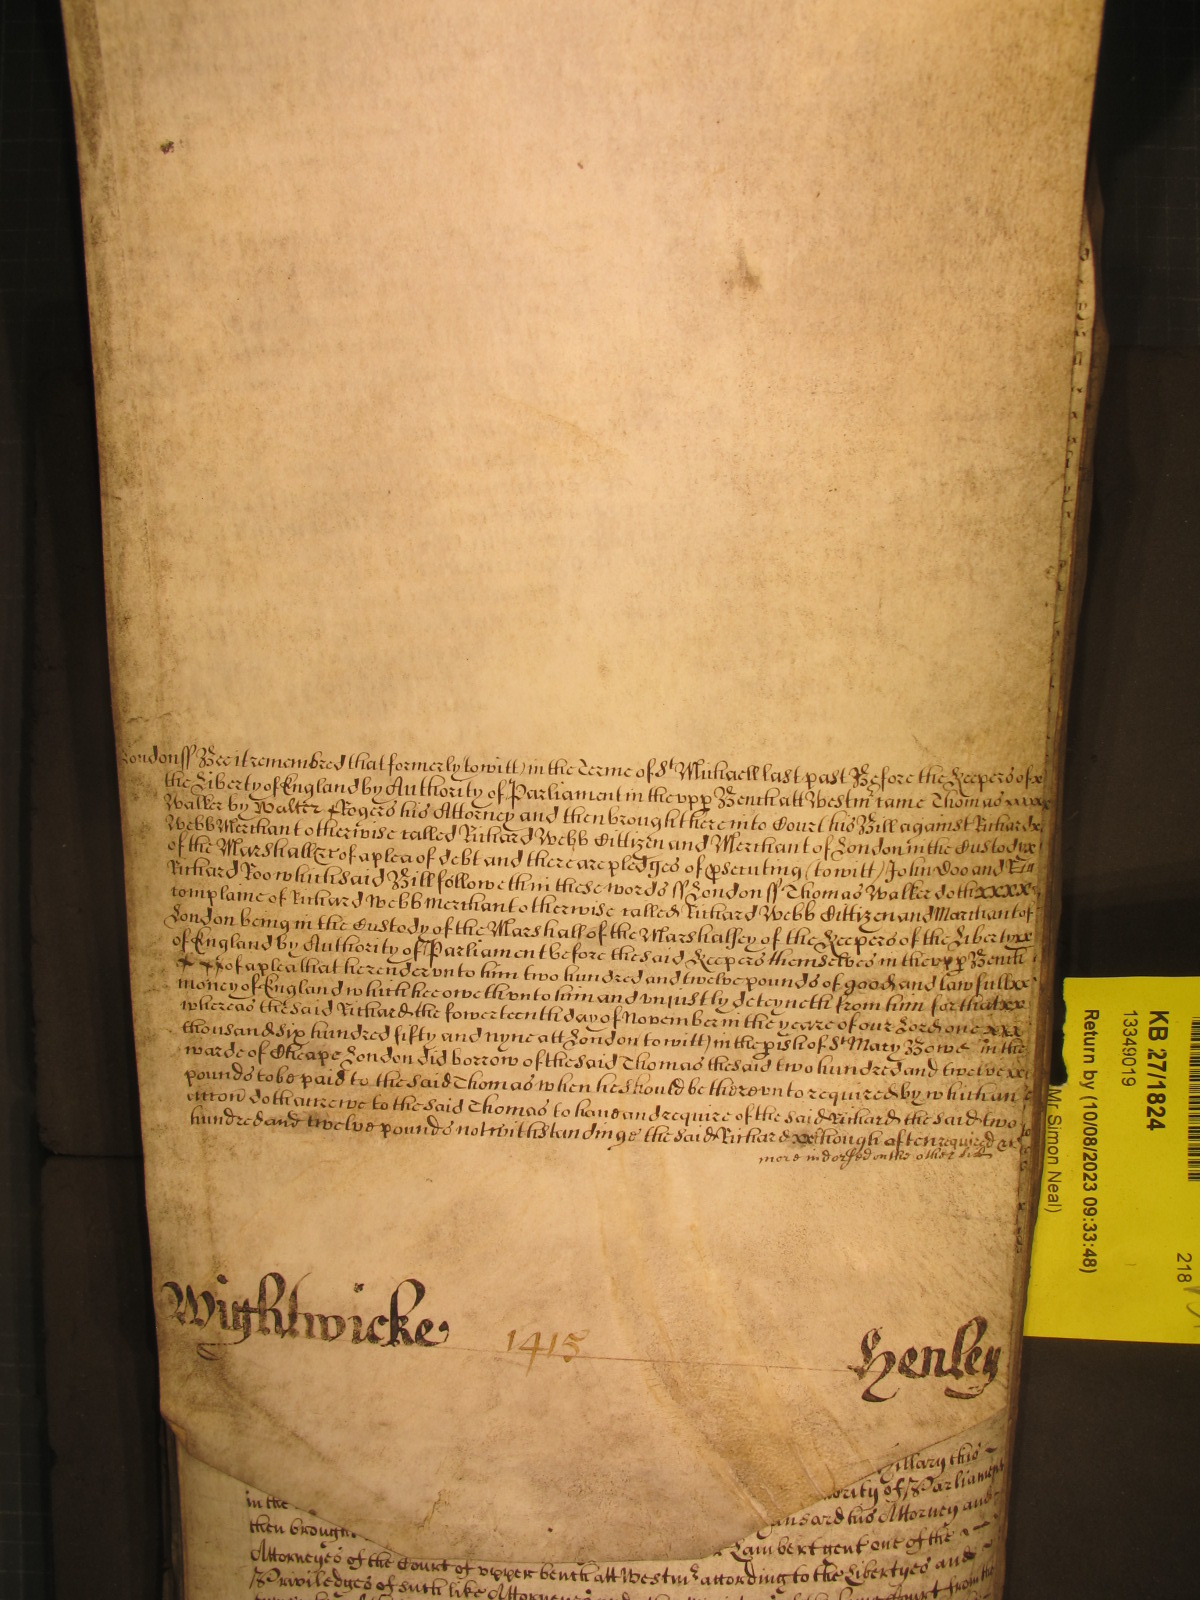 London ss Bee it remembred that formerly (to witt) in the Terme of St Michaell last past Before the Keepers of x
the Liberty of England by Authority of Parliament in the vpp Bench att Westmr came Thomas xxxxx
Walker by Walter Rogers his Attorney and then brought here into Court his Bill against Richard x
Webb Merchant otherwise called Richard Webb Cittizen and Merchant of London in the Custody x
of the Marshall &c of a plea of debt and there are pledges of psecuting (to witt) John Doo and
Richard Roo which said Bill followeth in these words ss London ss Thomas Walker doth xxxx
complaine of Richard Webb merchant otherwise called Richard Webb Cittizen and Marchant of
London being in the Custody of the Marshall of the Marshalsey of the Keepers of the Liberty xx
of England by Authority of Parliament before the said Keepers themselves in the vpp Bench
of a plea that he render vnto him two hundred and twelve pounds of good and lawfull xx
money of England which hee oweth vnto him and vnjustly deteyneth from him for that xx
whereas the said Richard the fowerteenth day of November in the yeare of our Lord one xxx
thousand six hundred fifty and nyne att London (to witt) in the pish of St Mary Bowe in the
warde of Cheape London did borrow of the said Thomas the said two hundred and twelve xx
pounds to be paid to the said Thomas when he should be therevnto required by which an
accon doth accrewe to the said Thomas to have and require of the said Richard the said two
hundred and twelve pounds notwithstandinge the said Richard xx though often required &c
more indorsed on the other side
Wightwicke 1415 Henley
Hillary this
in the
ority of Parliament
then brough
his Attorney and
Lambert gent one of the
Attorneyes of the Court of vpper bench att Westmr according to the Libertyes and
Priviledges of such like Attorneyes
Court from the
KB 27/1824
13349019
Return by (10/08/2023 09:33:48)
Mr Simon Neal)
218